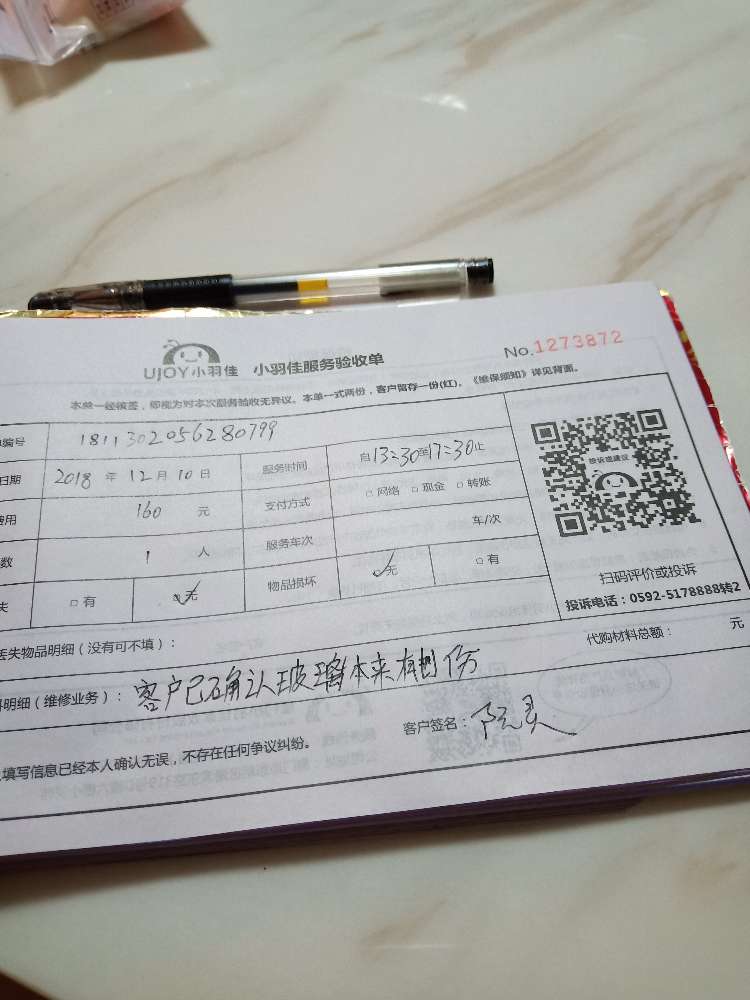 UJOY小羽佳 小羽佳服务验收单 No.1273872
本单一经核签，即视为对本次服务验收无异议。本单一式两份，客户留存一份(红)。《维保须知》详见背面。
编号 1811302056280799
日期 2018 年 12 月 10 日 服务时间 自13:30至17:30止
费用 160 元 支付方式 □网络 □现金 □转账
数 1 人 服务车次 车/次
失 □有 □无 物品损坏 □无 □有
投诉或建议
扫码评价或投诉
投诉电话：0592-5178888转2
丢失物品明细（没有可不填）： 代购材料总额： 元
明细（维修业务）： 客户已确认玻璃本来有划伤
填写信息已经本人确认无误，不存在任何争议纠纷。 客户签名：